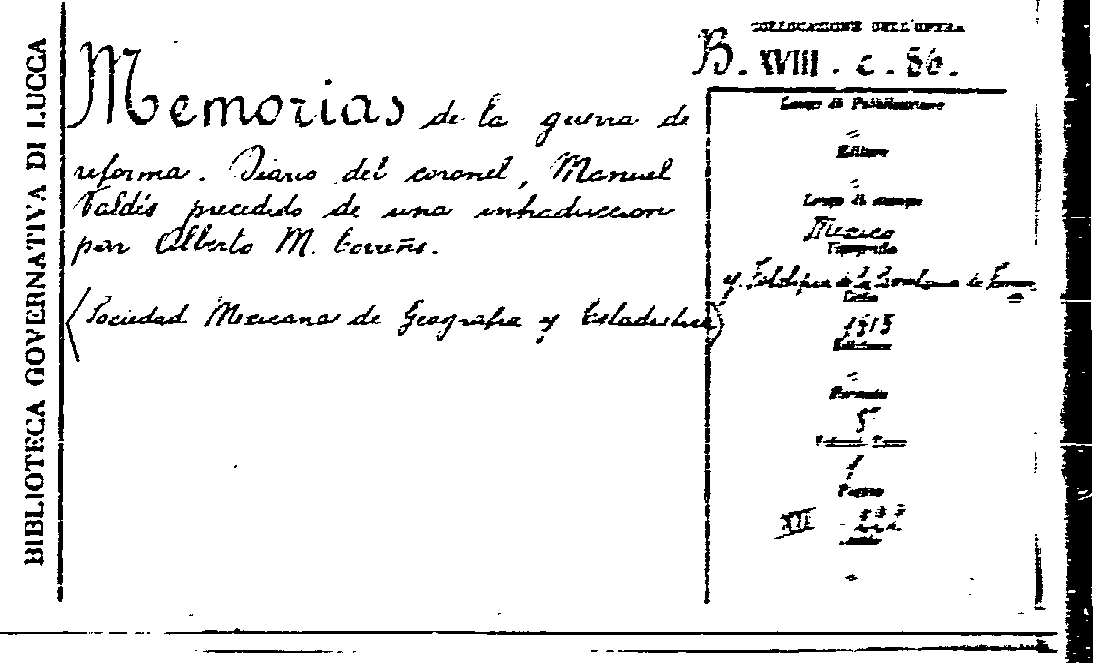 BIBLIOTECA GOVERNATIVA DI LUCCA
Memorias de la guerra de
reforma. Diario del coronel, Manuel
Valdés precedido de una introduccion
por Alberto M. Carreño.
(Sociedad Mexicana de Geografia y Estadistica)
COLLOCAZIONE DELL'OPERA
B. XVIII. c. 86.
Luogo di Pubblicazione
Editore
Luogo di stampa
Mexico
Tipografia
de la de
Data
1913
Edizione
Formato
Pagine
XII